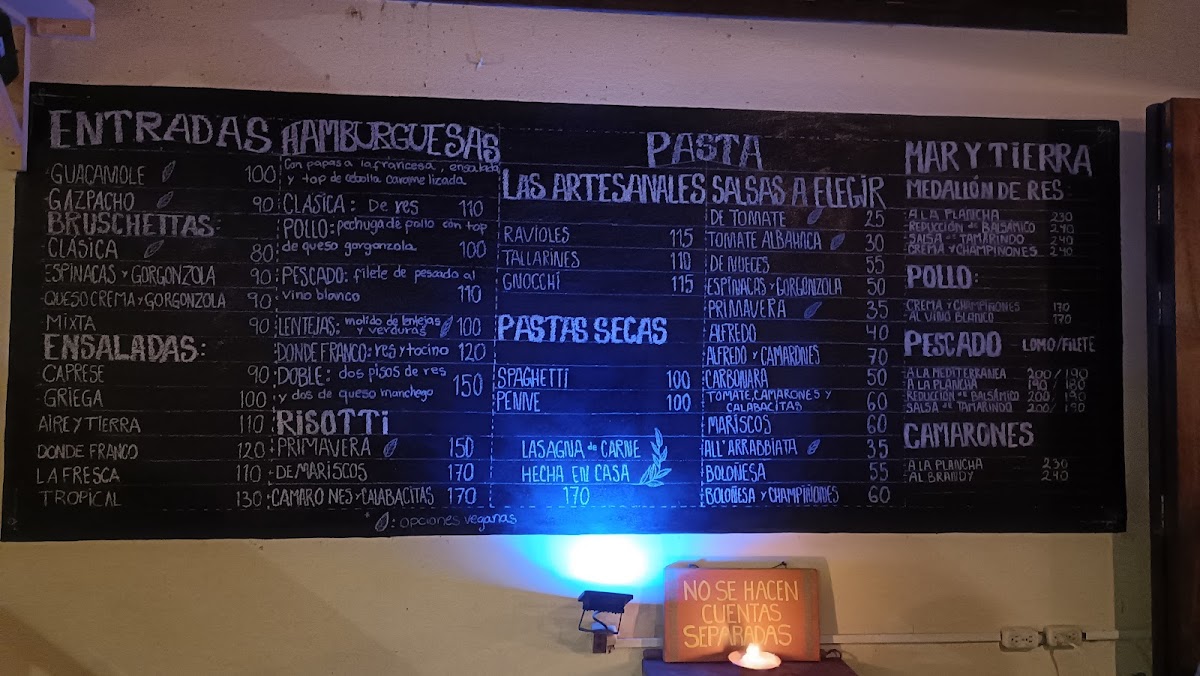 ENTRADAS
GUACAMOLE 100
GAZPACHO 90
BRUSCHETTAS:
CLÁSICA 80
ESPINACAS Y GORGONZOLA 90
QUESO CREMA Y GORGONZOLA 90
MIXTA 90
ENSALADAS:
CAPRESE 90
GRIEGA 100
AIRE Y TIERRA 110
DONDE FRANCO 120
LA FRESCA 110
TROPICAL 130
HAMBURGUESAS
Con papas a la francesa, ensalada
y top de cebolla caramelizada
CLÁSICA: De res 110
POLLO: pechuga de pollo con top
de queso gorgonzola 100
PESCADO: filete de pescado al
vino blanco 110
LENTEJAS: molido de lentejas
y verduras 100
DONDE FRANCO: res y tocino 120
DOBLE: dos pisos de res
y dos de queso manchego 150
RISOTTI
PRIMAVERA 150
DE MARISCOS 170
CAMARONES Y CALABACITAS 170
: opciones veganas
PASTA
LAS ARTESANALES
RAVIOLES 115
TALLARINES 110
GNOCCHI 115
PASTAS SECAS
SPAGHETTI 100
PENNE 100
LASAGNA de CARNE
HECHA EN CASA
170
SALSAS A ELEGIR
DE TOMATE 25
TOMATE ALBAHACA 30
DE NUECES 55
ESPINACAS Y GORGONZOLA 50
PRIMAVERA 35
ALFREDO 40
ALFREDO Y CAMARONES 70
CARBONARA 50
TOMATE, CAMARONES Y
CALABACITAS 60
MARISCOS 60
ALL'ARRABBIATA 35
BOLOÑESA 55
BOLOÑESA Y CHAMPIÑONES 60
MAR Y TIERRA
MEDALLÓN DE RES:
A LA PLANCHA 230
REDUCCIÓN de BALSÁMICO 240
SALSA de TAMARINDO 240
CREMA Y CHAMPIÑONES 240
POLLO:
CREMA Y CHAMPIÑONES 170
AL VINO BLANCO 170
PESCADO - LOMO/FILETE
A LA MEDITERRÁNEA 200/190
A LA PLANCHA 190/180
REDUCCIÓN de BALSÁMICO 200/190
SALSA de TAMARINDO 200/190
CAMARONES
A LA PLANCHA 230
AL BRANDY 240
NO SE HACEN
CUENTAS
SEPARADAS